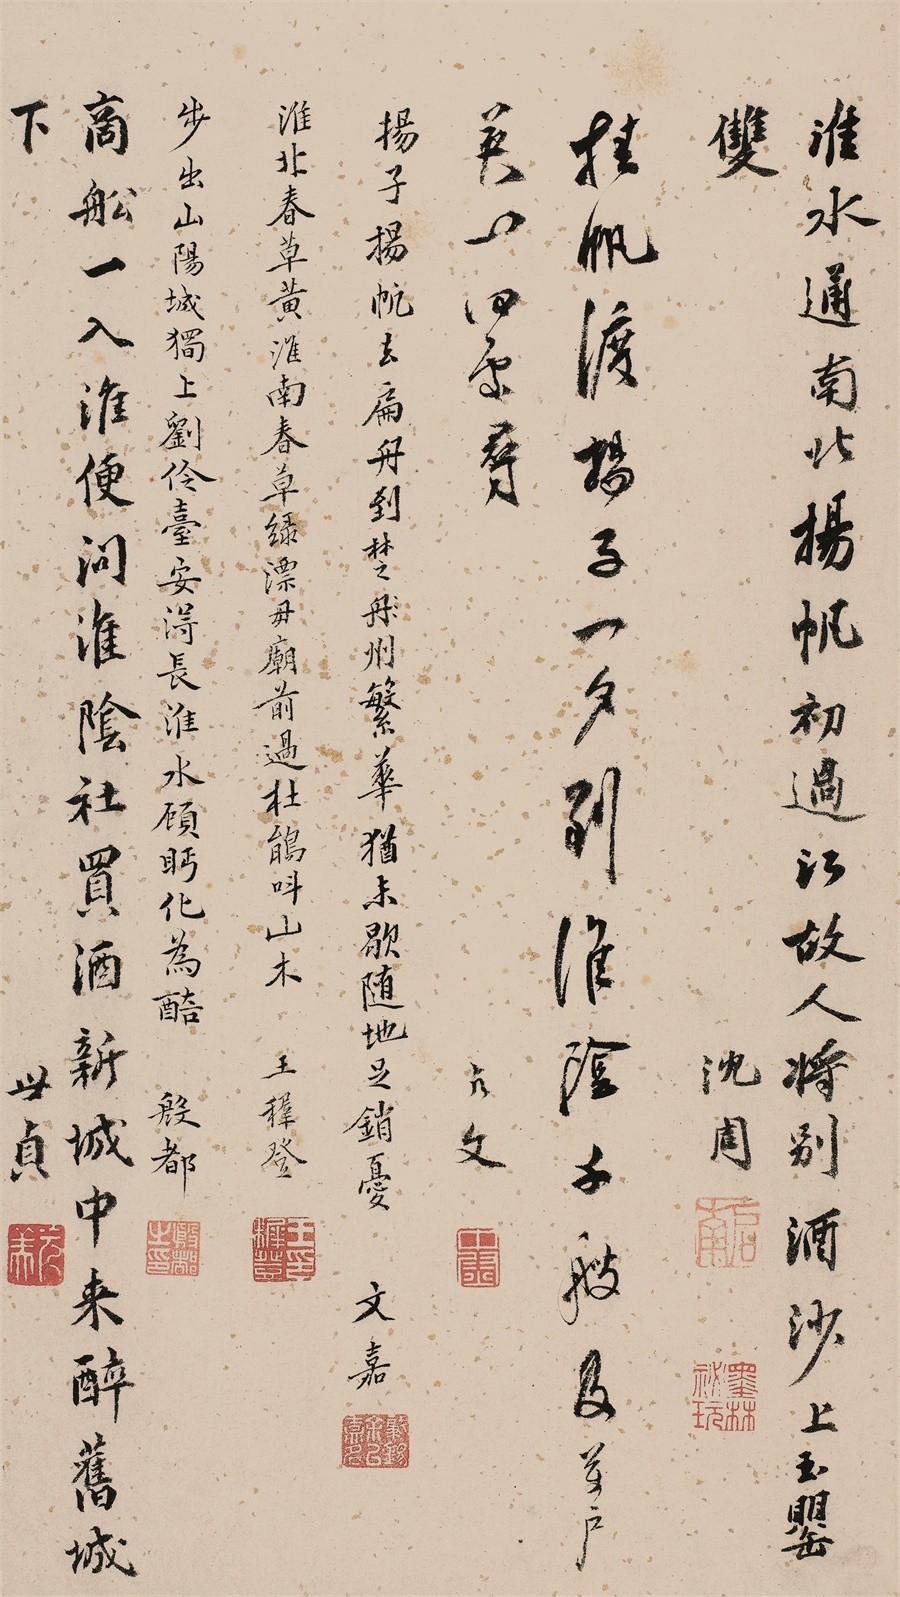 淮水通南北揚帆初過江故人將別酒沙上玉罌
雙
沈周
啟南
墨林
祕玩
挂帆渡揚子一夕到淮陰千艘及萬戶
文
揚子揚帆去扁舟到楚州繁華猶未歇随地足銷憂
文嘉
淮北春草黃淮南春草綠漂毋廟前過杜鵑叫山木
王穉登
王穉登印
步出山陽城獨上劉伶臺安得長淮水顧眄化為醅
殷都
殷都之印
商船一入淮便问淮陰社買酒新城中来醉舊城
下
世貞
元美